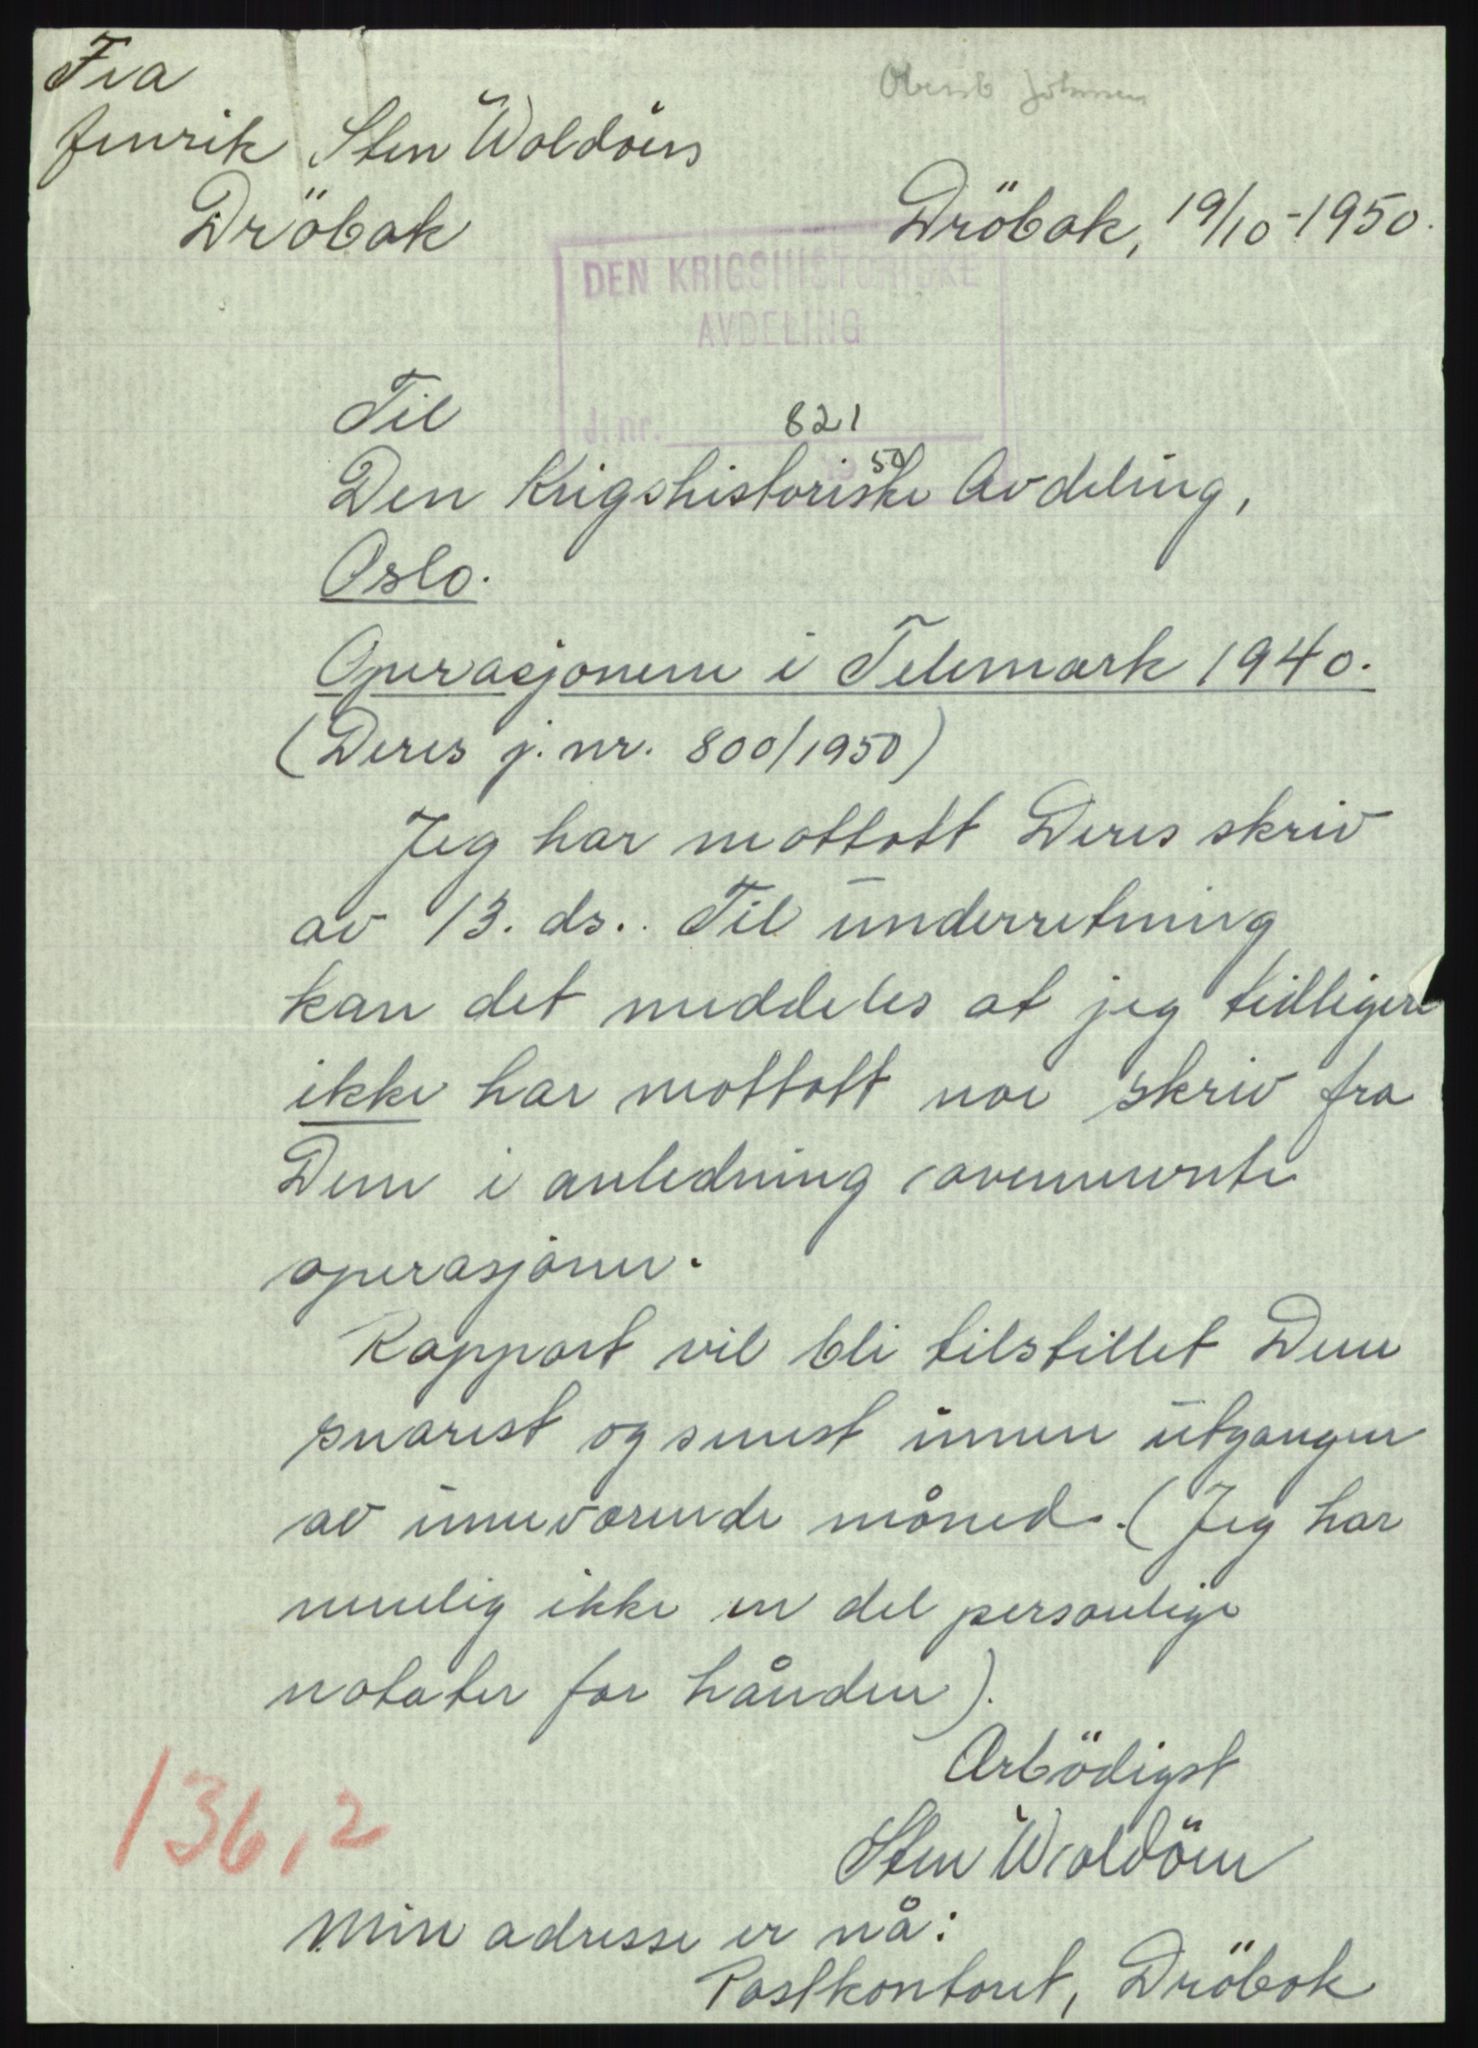 Fra
fenrik Sten Woldöen
Dröbak
Johnsen
Dröbak, 19/10-1950.
DEN KRIGSHISTORISKE
AVDELING
Til
J. nr. 821
50
Den Krigshistoriske Avdeling,
Oslo.
Operasjonene i Telemark 1940.
(Deres j. nr. 800/1950)
Jeg har mottatt Deres skriv
av 13. ds.. Til underretning
kan det meddeles at jeg tidligere
ikke har mottatt noe skriv fra
Dem i anledning ovennevnte
operasjoner.
Rapport vil bli tilstillet Dem
snarest og senest innen utgangen
av inneværende måned. (Jeg har
nemlig ikke en del personlige
notater for hånden).
Ærbödigst
Sten Woldöen
Min adresse er nå:
Postkontoret, Dröbak
136,2